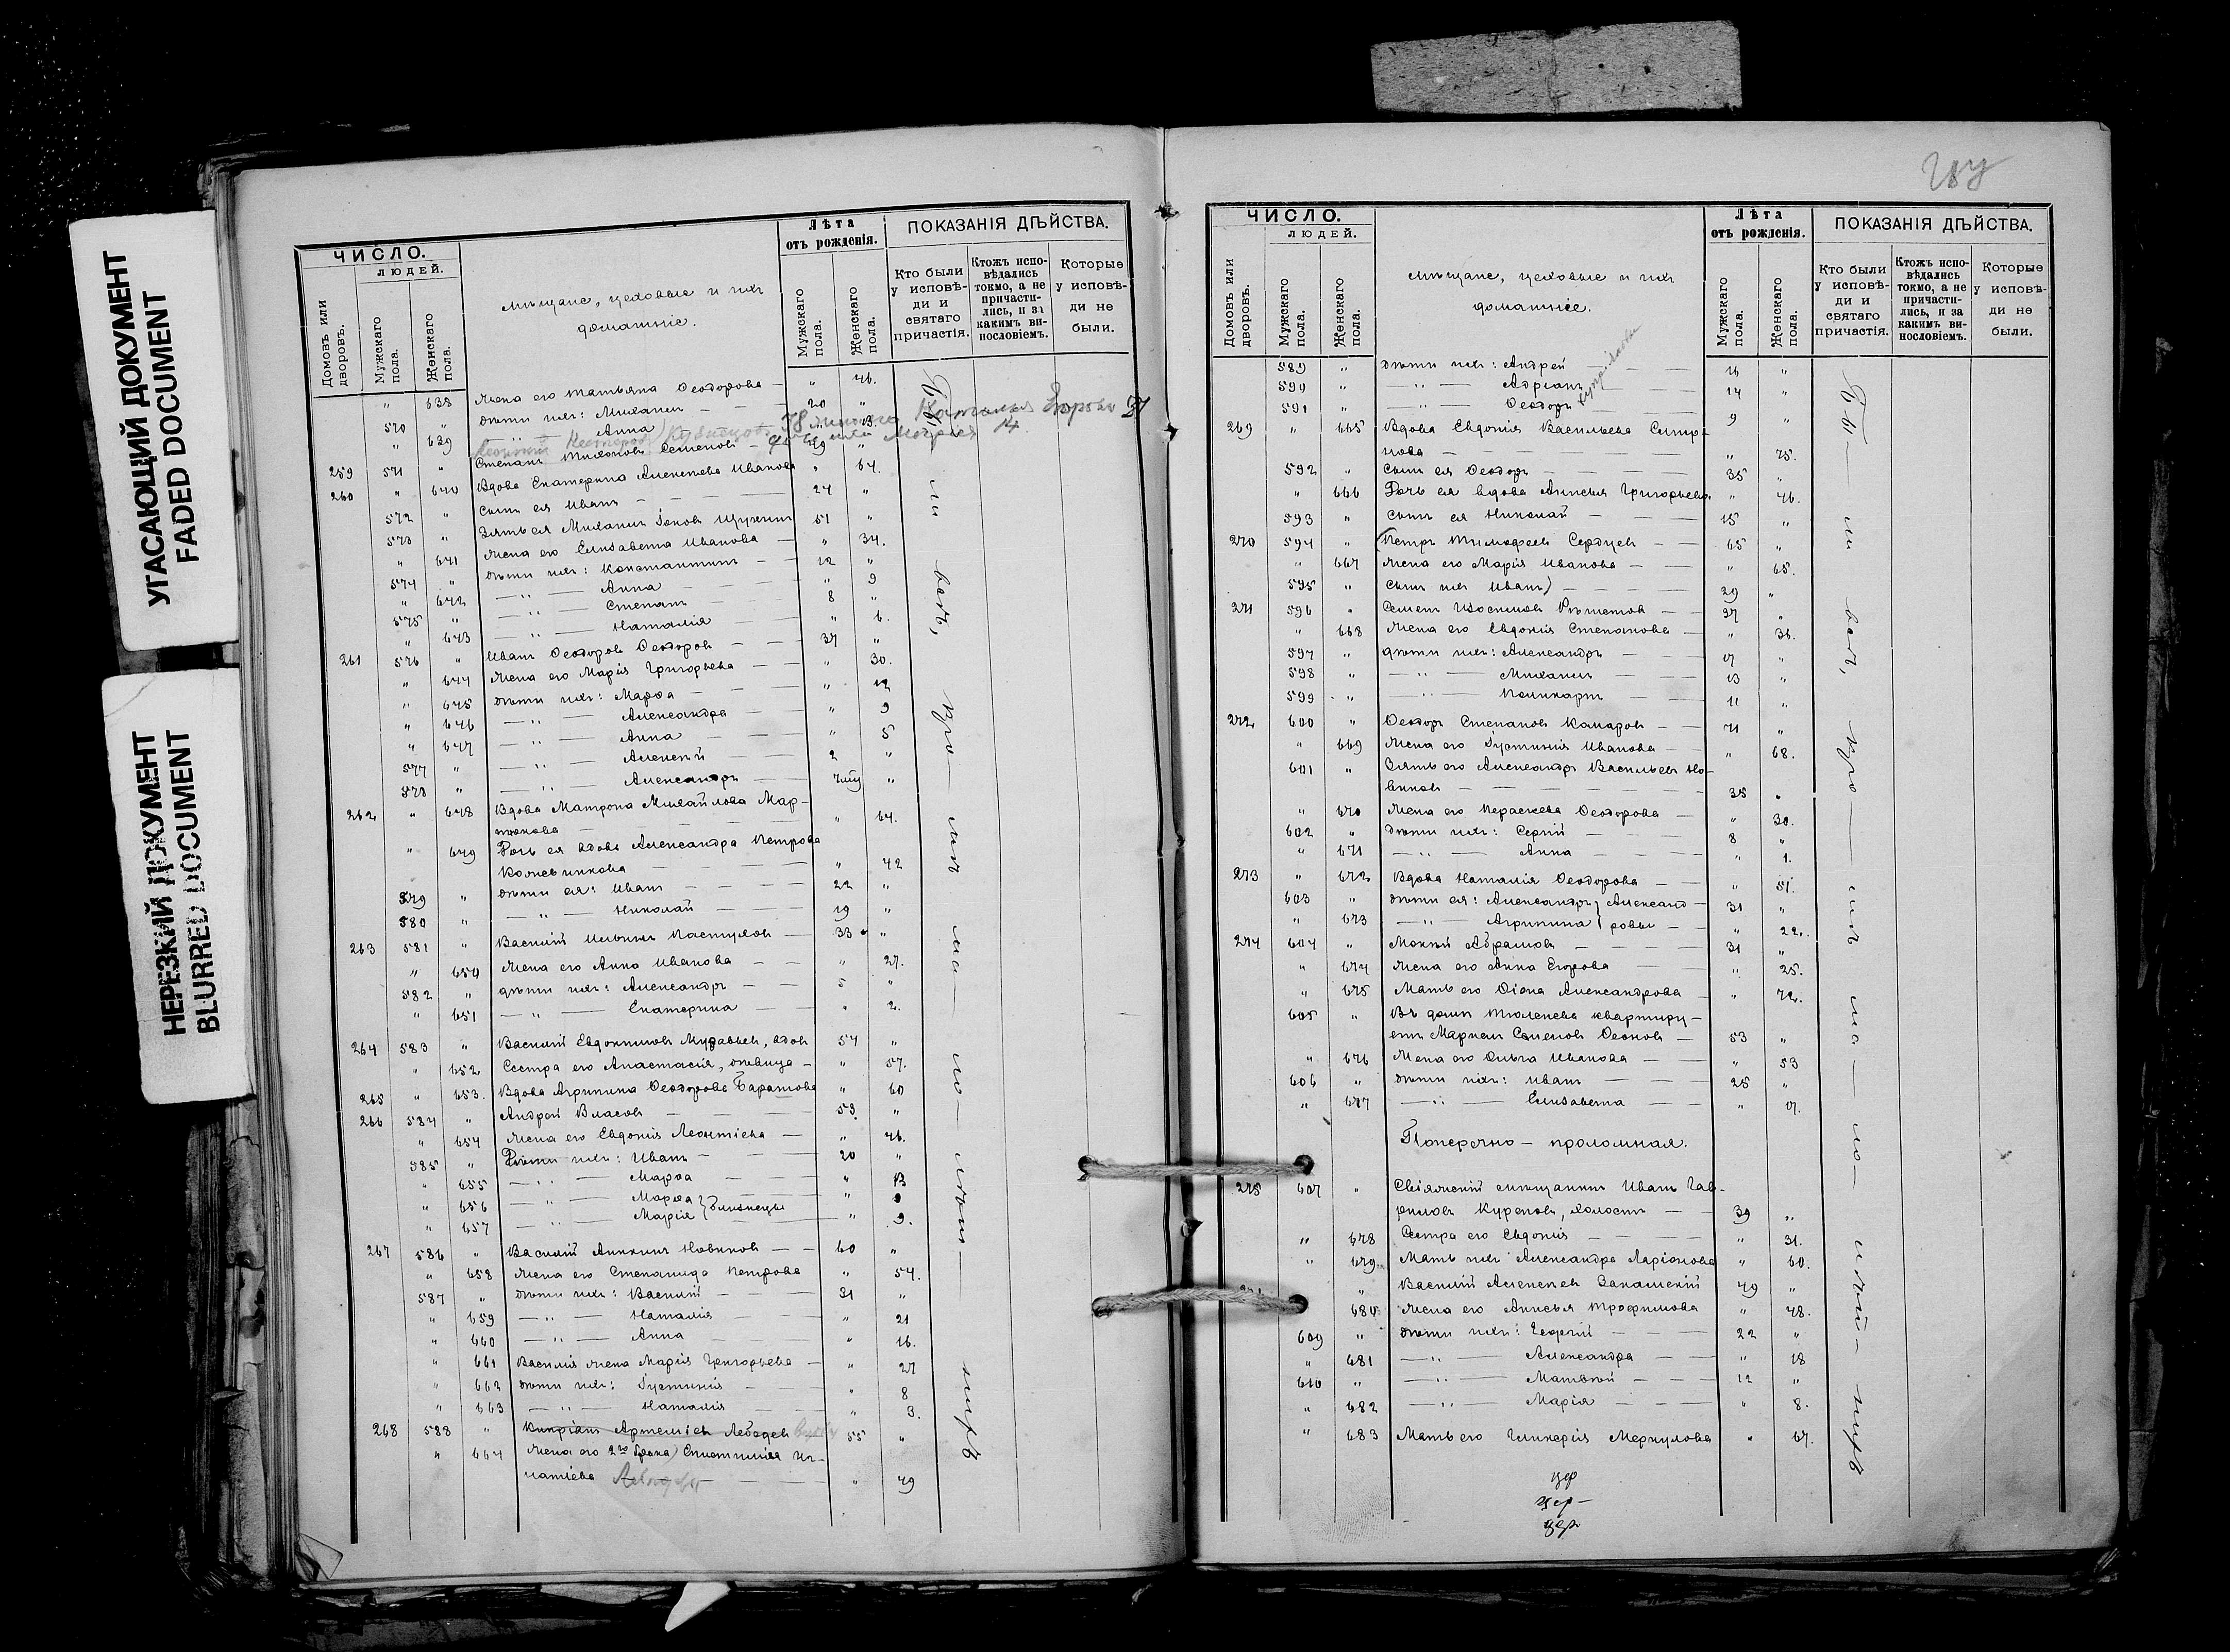 УГАСАЮЩИЙ ДОКУМЕНТ
FADED DOCUMENT
НЕРЕЗКИЙ ДОКУМЕНТ
BLURRED DOCUMENT
ЧИСЛО.
ЛЮДЕЙ.
Домовъ или дворовъ.
Мужскаго пола.
Женскаго пола.
мѣщане, цеховые и ихъ
домашніе.
Лѣта
отъ рожденія.
Мужскаго пола.
Женскаго пола.
ПОКАЗАНІЯ ДѢЙСТВА.
Кто были у исповѣди и святаго причастія.
Ктожъ исповѣдались токмо, а не причастились, и за какимъ винословіемъ.
Которые у исповѣди не были.
" 638 Жена его Татьяна Ѳеодорова — " 46.
570 " дѣти ихъ: Михаилъ — 20 "
" 639 — " — Анна
259 571 " Степанъ Тихоновъ Семеновъ — 49 "
260 " 640 Вдова Екатерина Алексѣева Иванова " 64.
572 " сынъ ея Иванъ — 24 "
573 " Зять ея Михаилъ Іоновъ Щукинъ 51 "
" 641 Жена его Елизавета Иванова — " 34.
574 " дѣти ихъ: Константинъ — 12 "
" 642 — " — Анна — " 9
575 " — " — Степанъ — 8 "
" 643 — " — Наталія — " 6.
261 576 " Иванъ Ѳеодоровъ Ѳеодоровъ — 37 "
" 644 Жена его Марія Григорьева — " 30.
" 645 дѣти ихъ: Марѳа — " 12
" 646 — " — Александра — " 9
" 647 — " — Анна — " 5
577 " — " — Алексѣй — 2 "
578 " — " — Александръ — "
262 " 648 Вдова Матрона Михайлова Мар-
" 64.
" 649 Дочь ея вдова Александра Петрова
Кожевникова — " 42
579 " дѣти ея: Иванъ — 22 "
580 " — " — Николай — 19 "
263 581 " Василій Ильинъ Пастуховъ — 33 "
" 650 Жена его Анна Иванова — " 27.
582 " дѣти ихъ: Александръ — 5 "
" 651 — " — Екатерина — " 2.
264 583 " Василій Евдокимовъ Муравьевъ, вдов 54 "
" 652 Сестра его Анастасія, дѣвица — " 57.
265 " 653. Вдова Агрипина Ѳеодорова Баратова " 60
266 584 " Андрей Власовъ — 59 "
" 654 Жена его Евдокія Леонтіева — " 46.
585 " Дѣти ихъ: Иванъ — 20 "
" 655 — " — Марѳа — " 13
" 656 — " — Марѳа } близнецы " 9
" 657 — " — Марія — " 9.
267 586 " Василій Аникинъ Новиковъ — 60 "
" 658 Жена его Степанида Петрова " 54.
587 " дѣти ихъ: Василій — 31 "
" 659 — " — Наталія — " 21
" 660 — " — Анна — " 16.
" 661 Василія жена Марія Григорьева — " 27
" 662 дѣти ихъ: Іустинія — " 8
" 663 — " — Наталія — " 3.
268 588 " Кипріанъ Артеміевъ Лебедев 55 "
" 664 Жена его 2го брака) Епистимія Иг-
натіева — " 49
Бы — ли всѣ, кро — мѣ ма — ло — лѣт — нихъ
ЧИСЛО.
ЛЮДЕЙ.
Домовъ или дворовъ.
Мужскаго пола.
Женскаго пола.
мѣщане, цеховые и ихъ
домашніе.
Лѣта
отъ рожденія.
Мужскаго пола.
Женскаго пола.
ПОКАЗАНІЯ ДѢЙСТВА.
Кто были у исповѣди и святаго причастія.
Ктожъ исповѣдались токмо, а не причастились, и за какимъ винословіемъ.
Которые у исповѣди не были.
589 " дѣти ихъ: Андрей — 16 "
590 " — " — Адріанъ — 14 "
591 " — " — Ѳеодоръ — 9 "
269 " 665 Вдова Евдокія Васильева Смир-
нова — " 75.
592 " сынъ ея Ѳеодоръ — 35 "
" 666 Дочь ея вдова Анисья Григорьева " 46.
593 " сынъ ея Николай — 15 "
270 594 " (Петръ Тимоѳеевъ Сердцев — 65 "
" 667 Жена его Марія Иванова — " 65.
595 " сынъ ихъ Иванъ) — 29 "
271 596 " Семенъ Изосимовъ Рѣшетовъ — 37 "
" 668 Жена его Евдокія Степанова — " 36.
597 " дѣти ихъ: Александръ — 17 "
598 " — " — Михаилъ — 13 "
599 " — " — Поликарпъ — 11 "
272 600 " Ѳеодоръ Степановъ Комаровъ — 71 "
" 669 Жена его Іустинія Иванова — " 68.
601 " Зять его Александръ Васильевъ Но-
виковъ — 35 "
" 670 Жена его Параскева Ѳеодорова — " 30.
602 " дѣти ихъ: Сергій — 8 "
" 671 — " — Анна — " 1.
273 " 672 Вдова Наталія Ѳеодорова — " 51.
603 " дѣти ея: Александръ } Александ- 31 "
" 673 — " — Агрипина } ровы — " 22.
274 604 " Мокій Абрамовъ — 31 "
" 674 Жена его Анна Егорова — " 25.
" 675 Мать его Ѳіона Александрова — " 72.
605 " Въ домѣ Тюленева квартиру-
етъ Маркелъ Семеновъ Леоновъ — 53 "
" 676 Жена его Ольга Иванова — " 53
606 " дѣти ихъ: Иванъ — 25 "
" 677 — " — Елизавета — " 17.
Поперечно — проломная.
275 607 " Свіяжскій мѣщанинъ Иванъ Гав-
риловъ Курековъ, холостъ — 39 "
" 678 Сестра его Евдокія — " 31.
" 679 Мать ихъ Александра Ларіонова " 60.
" Василій Алексѣевъ Закамскій 49 "
" 680 Жена его Анисья Трофимова " 48.
609 " дѣти ихъ: Георгій — 22 "
" 681 — " — Александра — " 18
610 " — " — Матвѣй — 12 "
" 682 — " — Марія — " 8.
" 683 Мать его Гликерія Меркулова " 67.
Бы — ли всѣ, кро — мѣ ма — ло — лѣт — нихъ